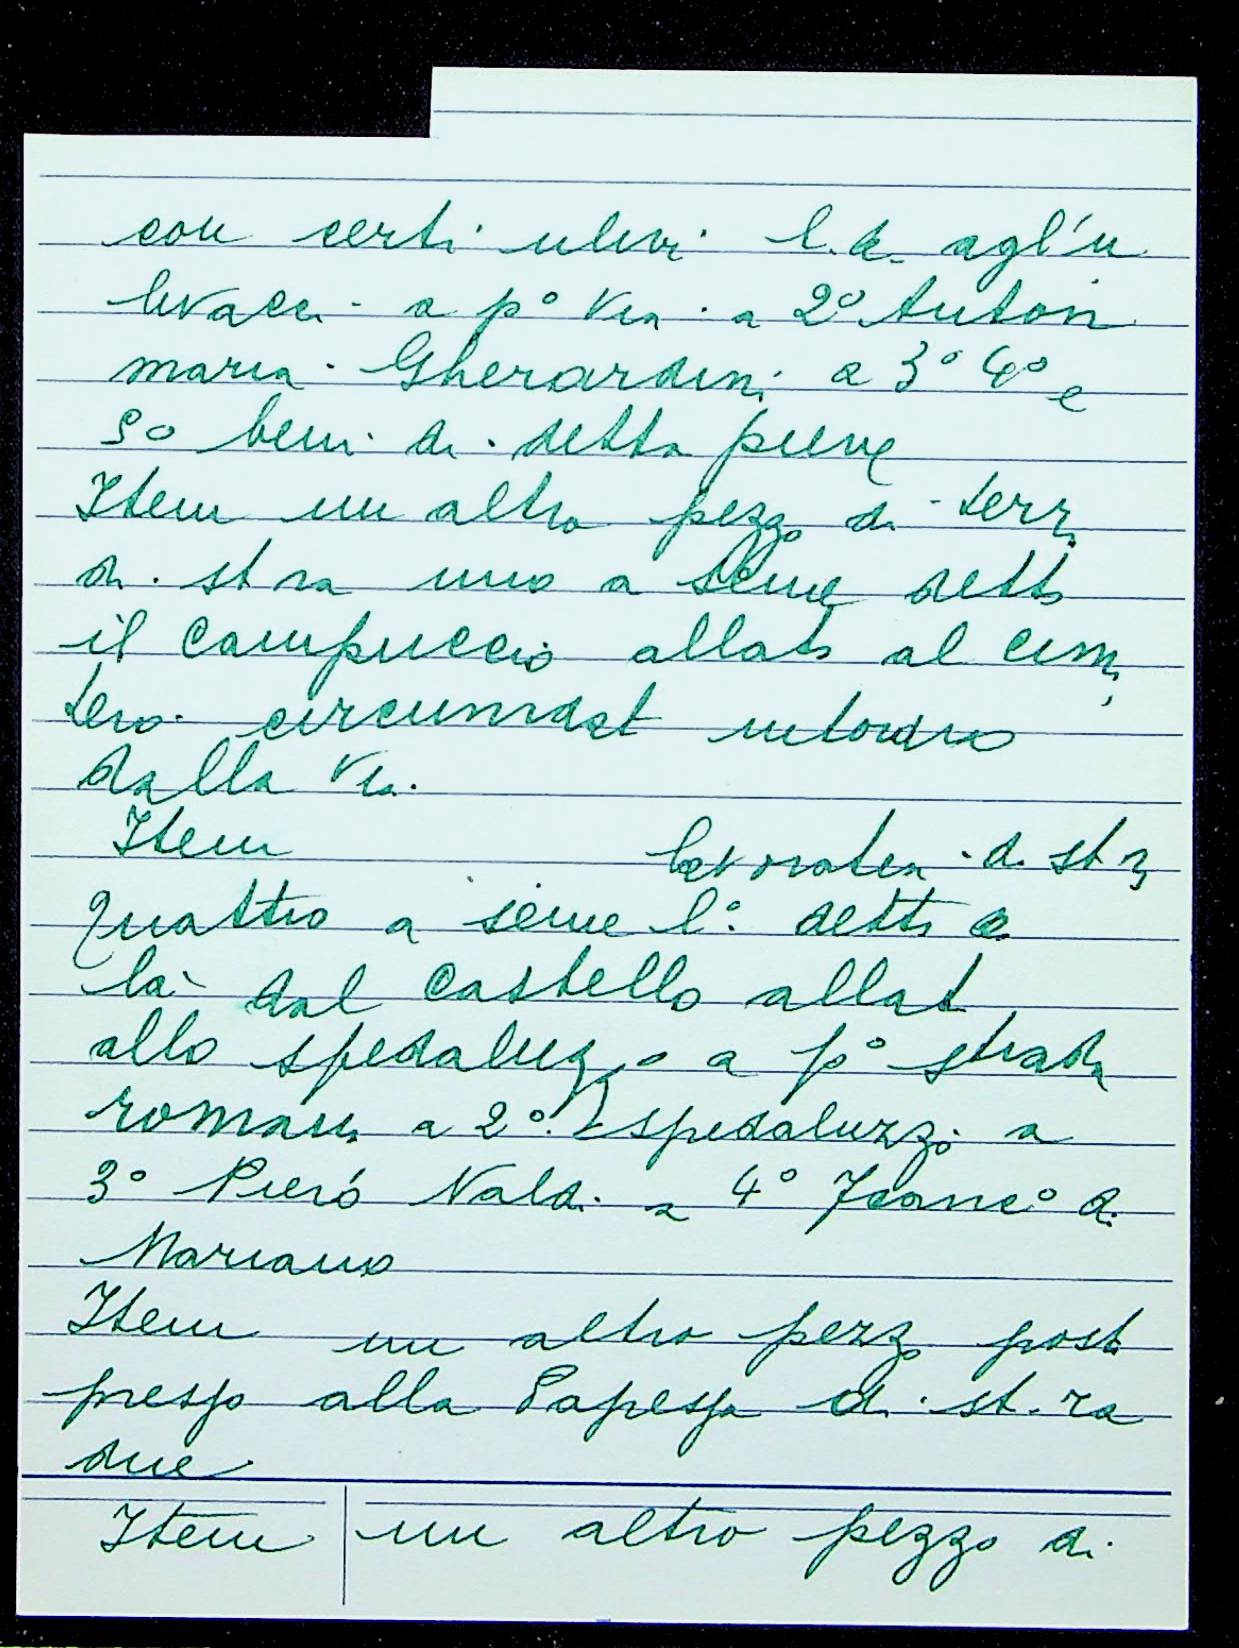 con certi ulivi l.d. agl'u
livacci a pº via a 2º Anton
maria Gherardini a 3º 4º e
5º beni di detta pieve
Item un altro pezzo di terr
di stra uno a seme detto
il campuccio allato al cimi
tero circumdat intorno
dalla via.
Item lavoratia di stra
quattro a seme lº detto di
là dal castello allat
allo spedaluzzo a pº strada
romana a 2º Spedaluzzo a
3º Piero Naldi a 4º Francº di
Mariano
Item un altro pezzo post
presso alla Papessa di st.ra
due
Item un altro pezzo di